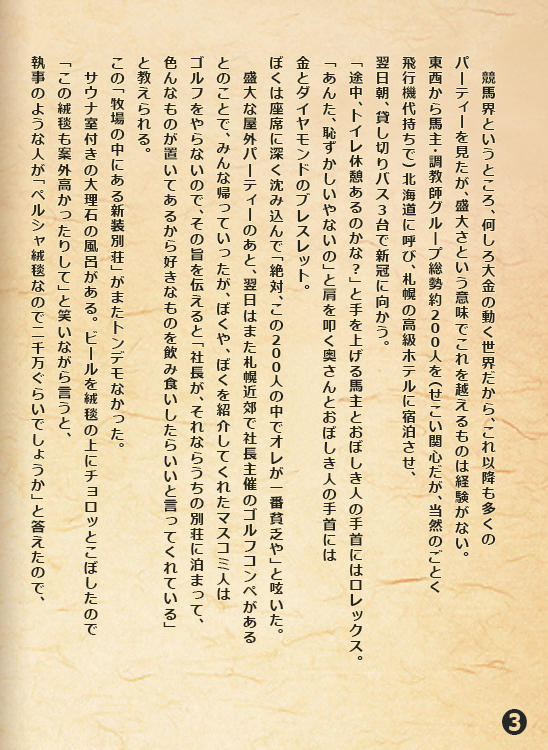 競馬界というところ、何しろ大金の動く世界だから、これ以降も多くの
パーティーを見たが、盛大さという意味でこれを越えるものは経験がない。
東西から馬主・調教師グループ総勢約200人を(せこい関心だが、当然のごとく
飛行機代持ちで)北海道に呼び、札幌の高級ホテルに宿泊させ、
翌日朝、貸し切りバス3台で新冠に向かう。
「途中、トイレ休憩あるのかな?」と手を上げる馬主とおぼしき人の手首にはロレックス。
「あんた、恥ずかしいやないの」と肩を叩く奥さんとおぼしき人の手首には
金とダイヤモンドのブレスレット。
ぼくは座席に深く沈み込んで「絶対、この200人の中でオレが一番貧乏や」と呟いた。
盛大な屋外パーティーのあと、翌日はまた札幌近郊で社長主催のゴルフコンペがある
とのことで、みんな帰っていったが、ぼくや、ぼくを紹介してくれたマスコミ人は
ゴルフをやらないので、その旨を伝えると「社長が、それならうちの別荘に泊まって、
色んなものが置いてあるから好きなものを飲み食いしたらいいと言ってくれている」
と教えられる。
この「牧場の中にある新装別荘」がまたトンデモなかった。
サウナ室付きの大理石の風呂がある。ビールを絨毯の上にチョロッとこぼしたので
「この絨毯も案外高かったりして」と笑いながら言うと、
執事のような人が「ペルシャ絨毯なので二千万ぐらいでしょうか」と答えたので、
3